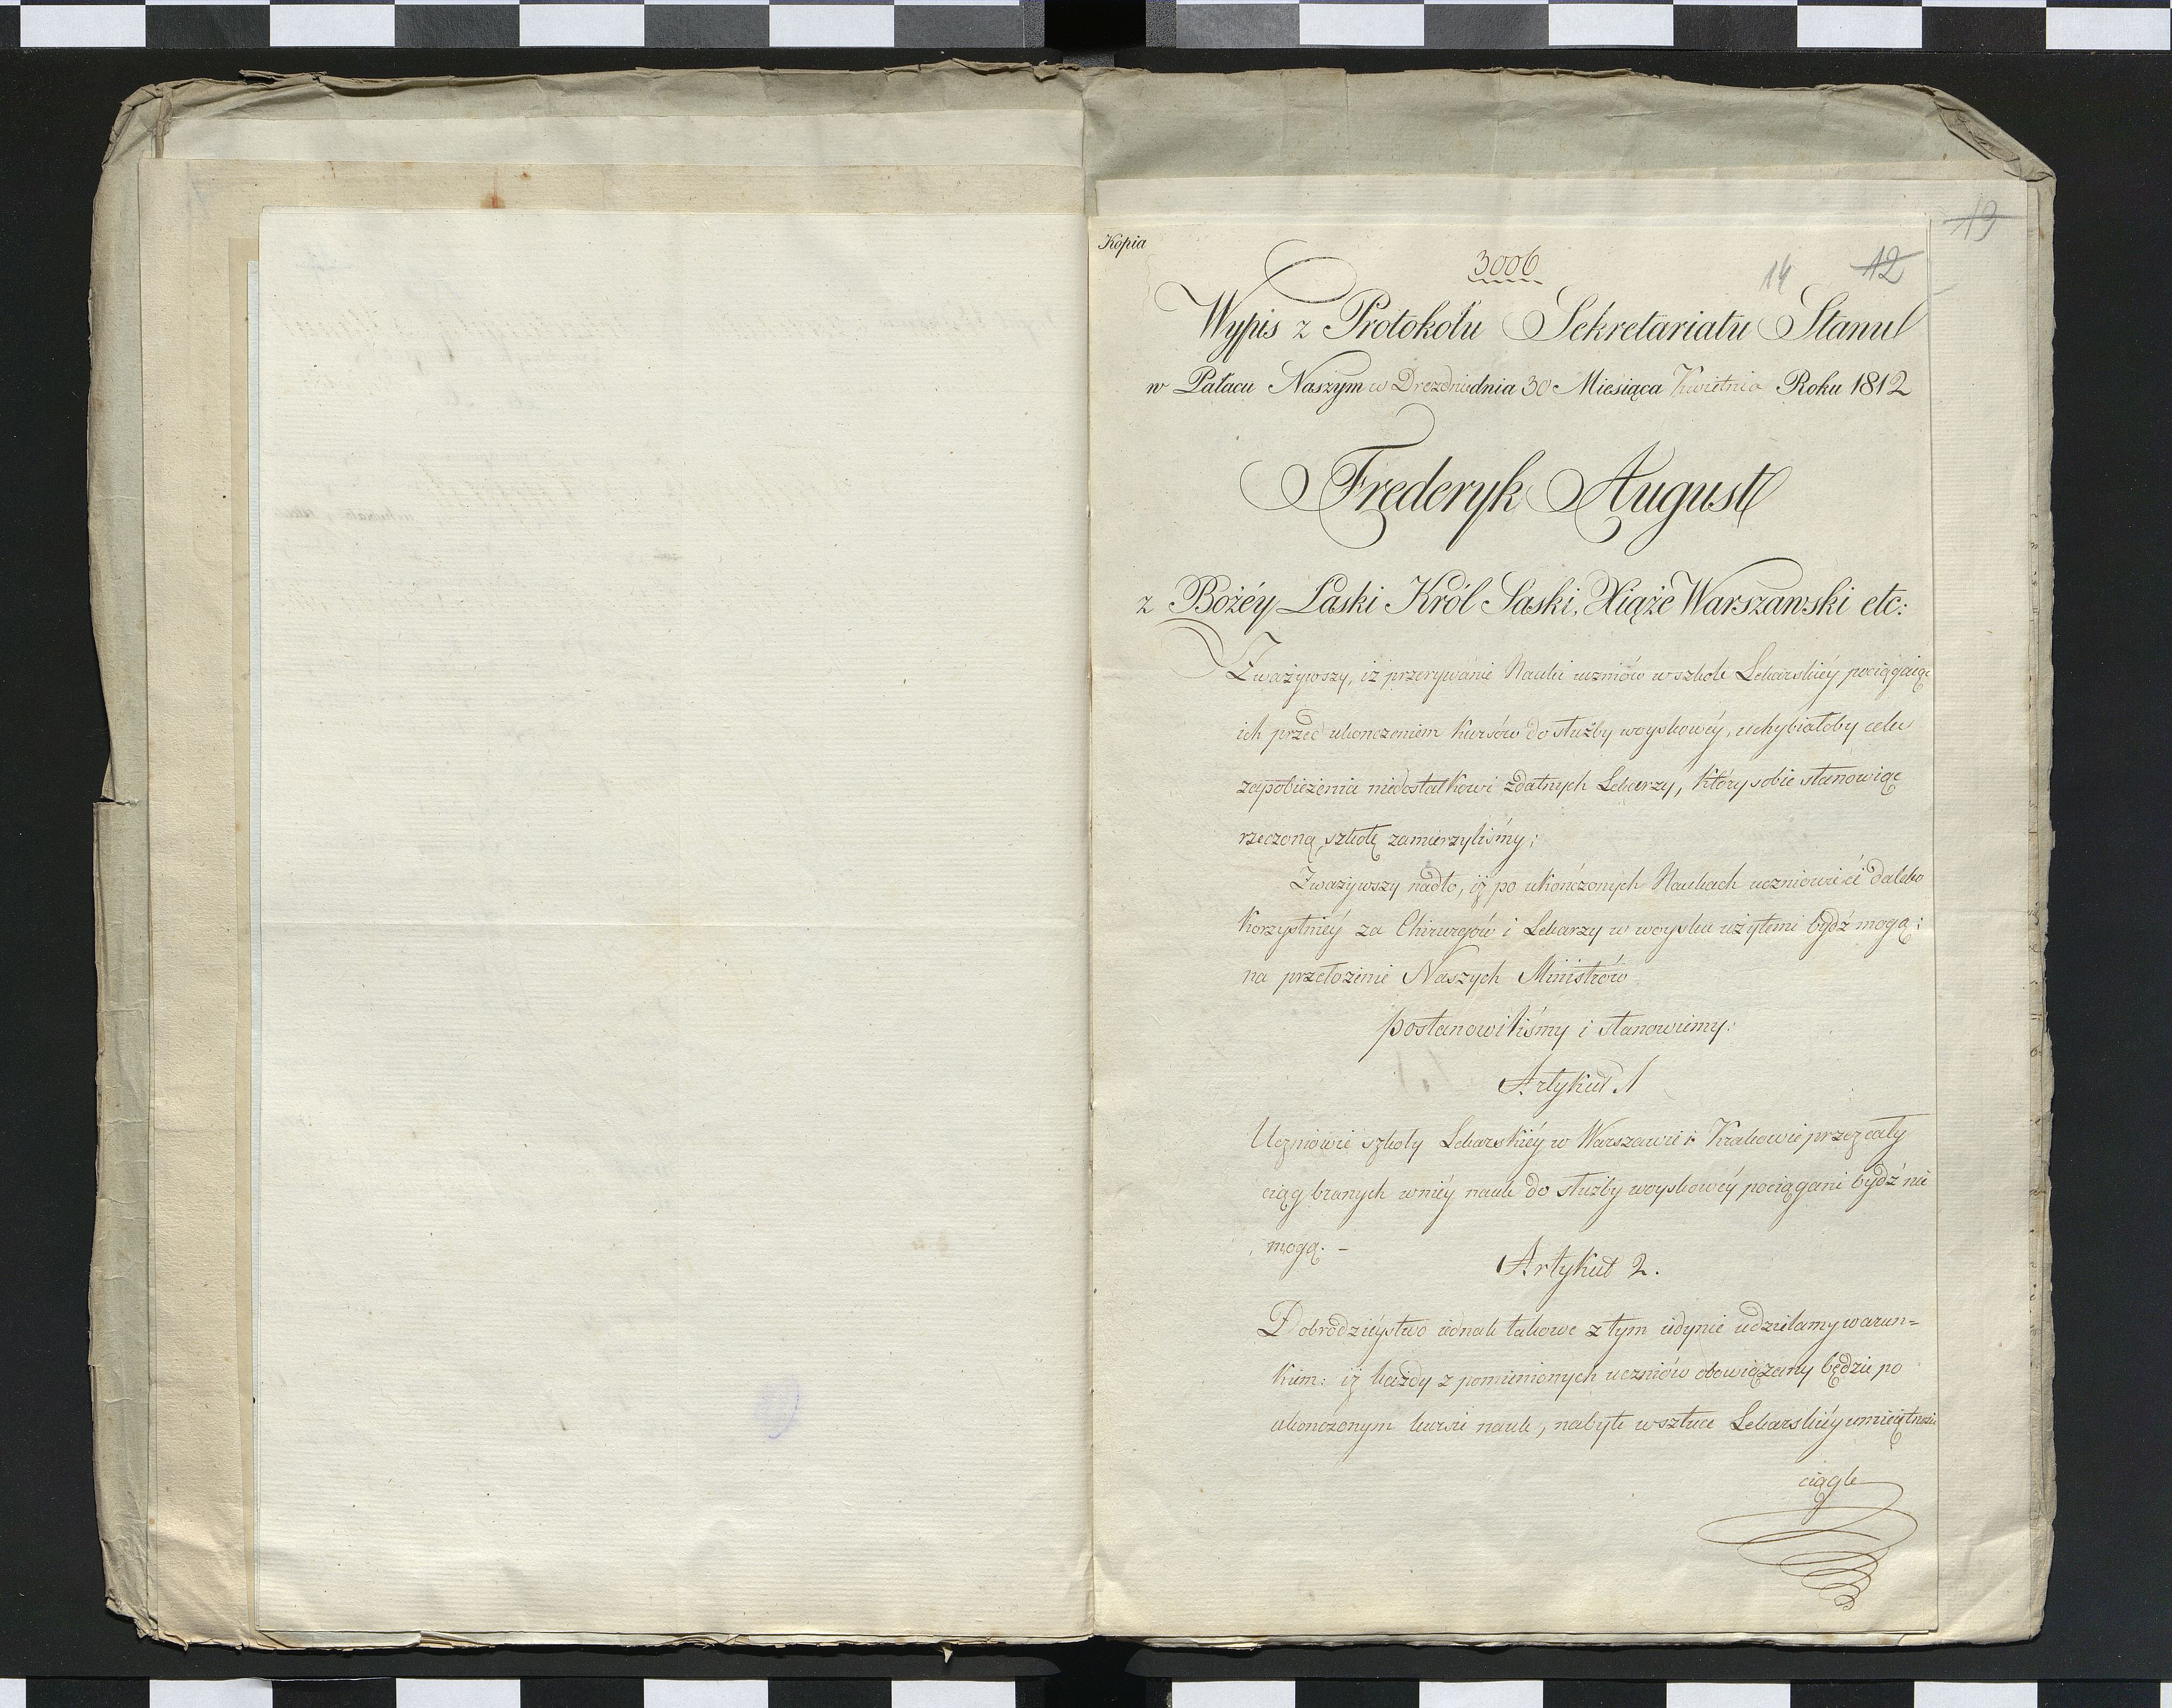 Kopia
3006
19
14 12
Wypis z Protokołu Sekretariatu Stanu
w Pałacu Naszym w Dreznie dnia 30 Miesiąca Kwietnia Roku 1812
Frederyk August
z Bożéy Łaski Król Saski, Xiąże Warszawski etc:
Zważywszy, iż przerywanie Nauki uczniów w szkole Lekarskiéy pociągaiąc
ich przed ukonczeniem kursów do służby woyskowéy, uchybiałoby celu
zapobieżenia niedostatkowi zdatnych Lekarzy, który sobie stanowiąc
rzeczoną szkołę zamierzyliśmy;
Zważywszy nadto, iż po ukończonych Naukach uczniowie ci daleko
korzystniéy za Chirurgów i Lekarzy w woysku użytemi bydź mogą;
na przełożenie Naszych Ministrów
postanowiliśmy i stanowiemy:
Artykuł 1
Uczniowie szkoły Lekarskiéy w Warszawie i Krakowie przez cały
ciąg branych w niéy nauk do służby woyskowéy pociągani bydź nie
mogą. -
Artykuł 2.
Dobrodzieystwo iednak takowe z tym iedynie udzielamy warun=
kiem: iż każdy z pomienionych uczniów obowiązany będzie po
ukonczonym kursie nauk, nabyte w sztuce Lekarskiéy umieiętności
ciągle